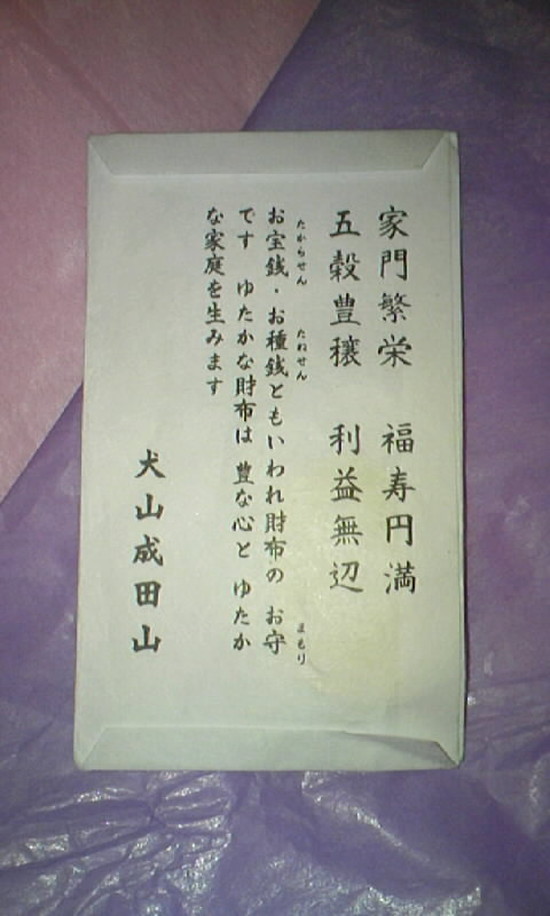 家門繁栄　福寿円満
五穀豊穣　利益無辺
たからせん　たねせん　まもり
お宝銭・お種銭ともいわれ財布の　お守
です　ゆたかな財布は　豊な心と　ゆたか
な家庭を生みます
犬山成田山